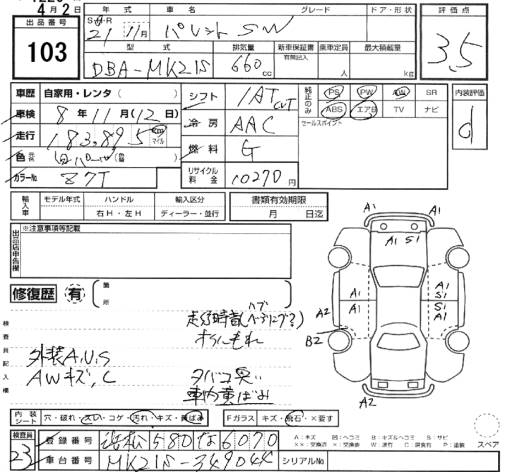 4月2日
出品番号 103
年式 車名 グレード ドア・形状 評価点
S・H・R 21年11月 パレットSW 3.5
型式 排気量 新車保証書 乗車定員 最大積載量
有無記入
DBA-MK21S 660cc 人 kg
車歴 自家用・レンタ( ) シフト 1AT CVT 純正のみ PS PW AW SR 内装評価
車検 8年11月(12日) 冷房 AAC ABS エアB TV ナビ d
走行 183,895 km マイル 燃料 G セールスポイント
色 リサイクル料金 10270円
カラーNo Z7T
輸入車 モデル年式 ハンドル 輸入区分 書類有効期限
右H・左H ディーラー・並行 月 日迄
出品店申告欄 ※注意事項等記載
修復歴 有 箇所
検査員記入欄
オイルもれ
外装A,U,S
AWキズ,C タバコ臭い
車内黄ばみ
A1 A1
A1 S1
A1 A1
S1 S1
A2 A1 A1
B2
A2
内装シート 穴・破れ・スレ・コゲ・汚れ・キズ・黄ばみ Fガラス キズ・飛石・×要す
検査員 23 登録番号 浜松580な6070 スペア
A:キズ B:キズ&ヘコミ S:サビ
車台番号 MK21S-349044 シリアルNo